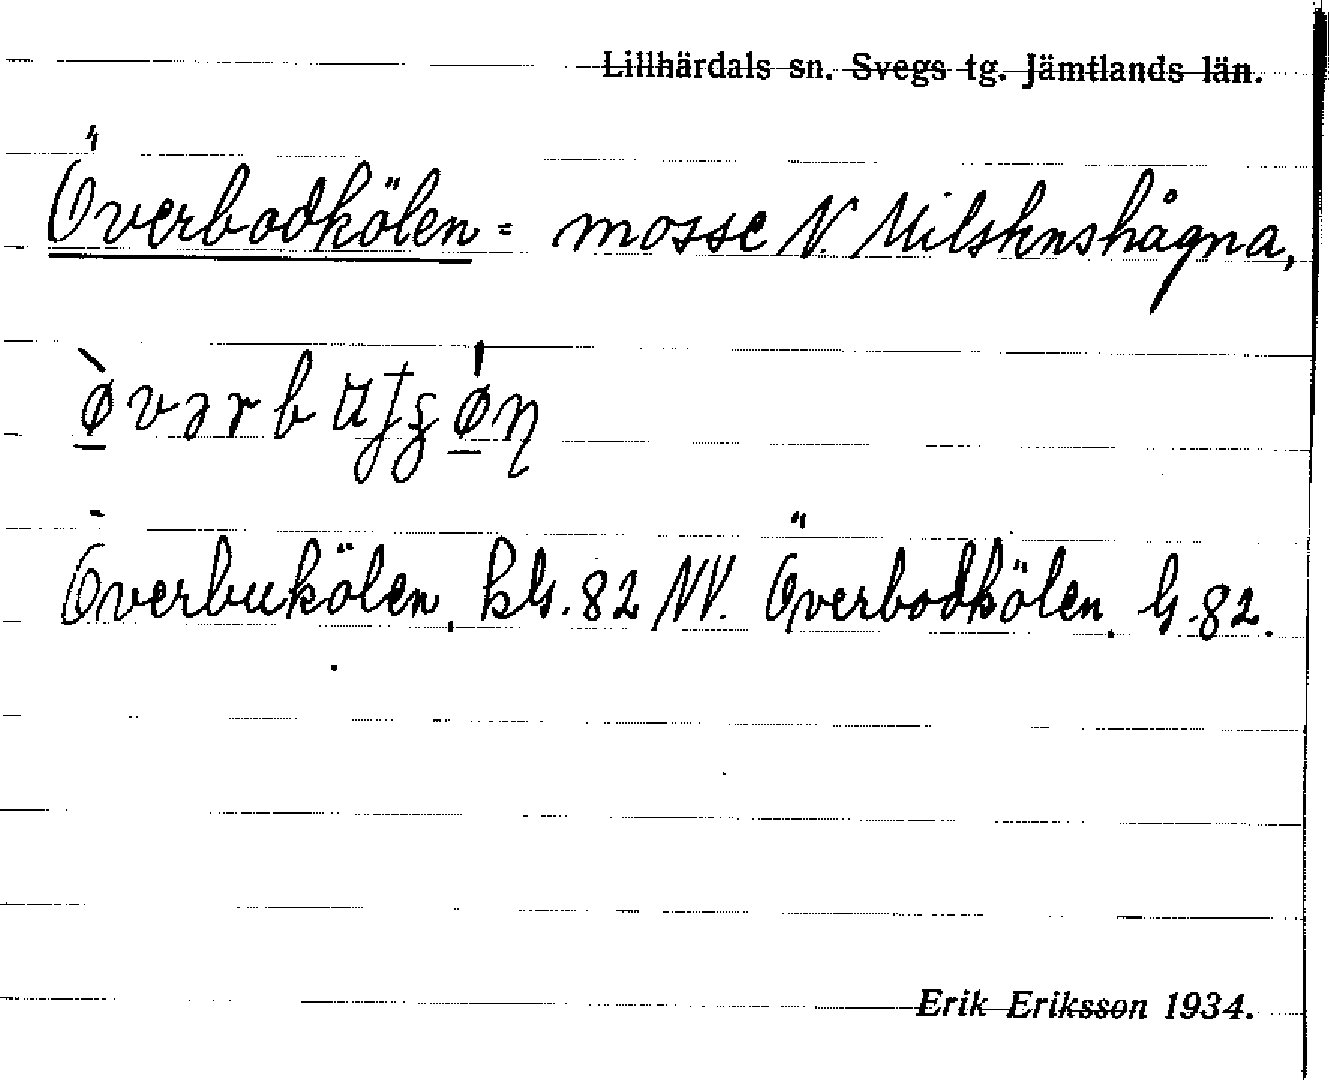 Lillhärdals sn. Svegs tg. Jämtlands län.
Överbodkölen = mosse N.
Överbukölen. kls. 82 NV. Överbodkölen. ls. 82.
Erik Eriksson 1934.